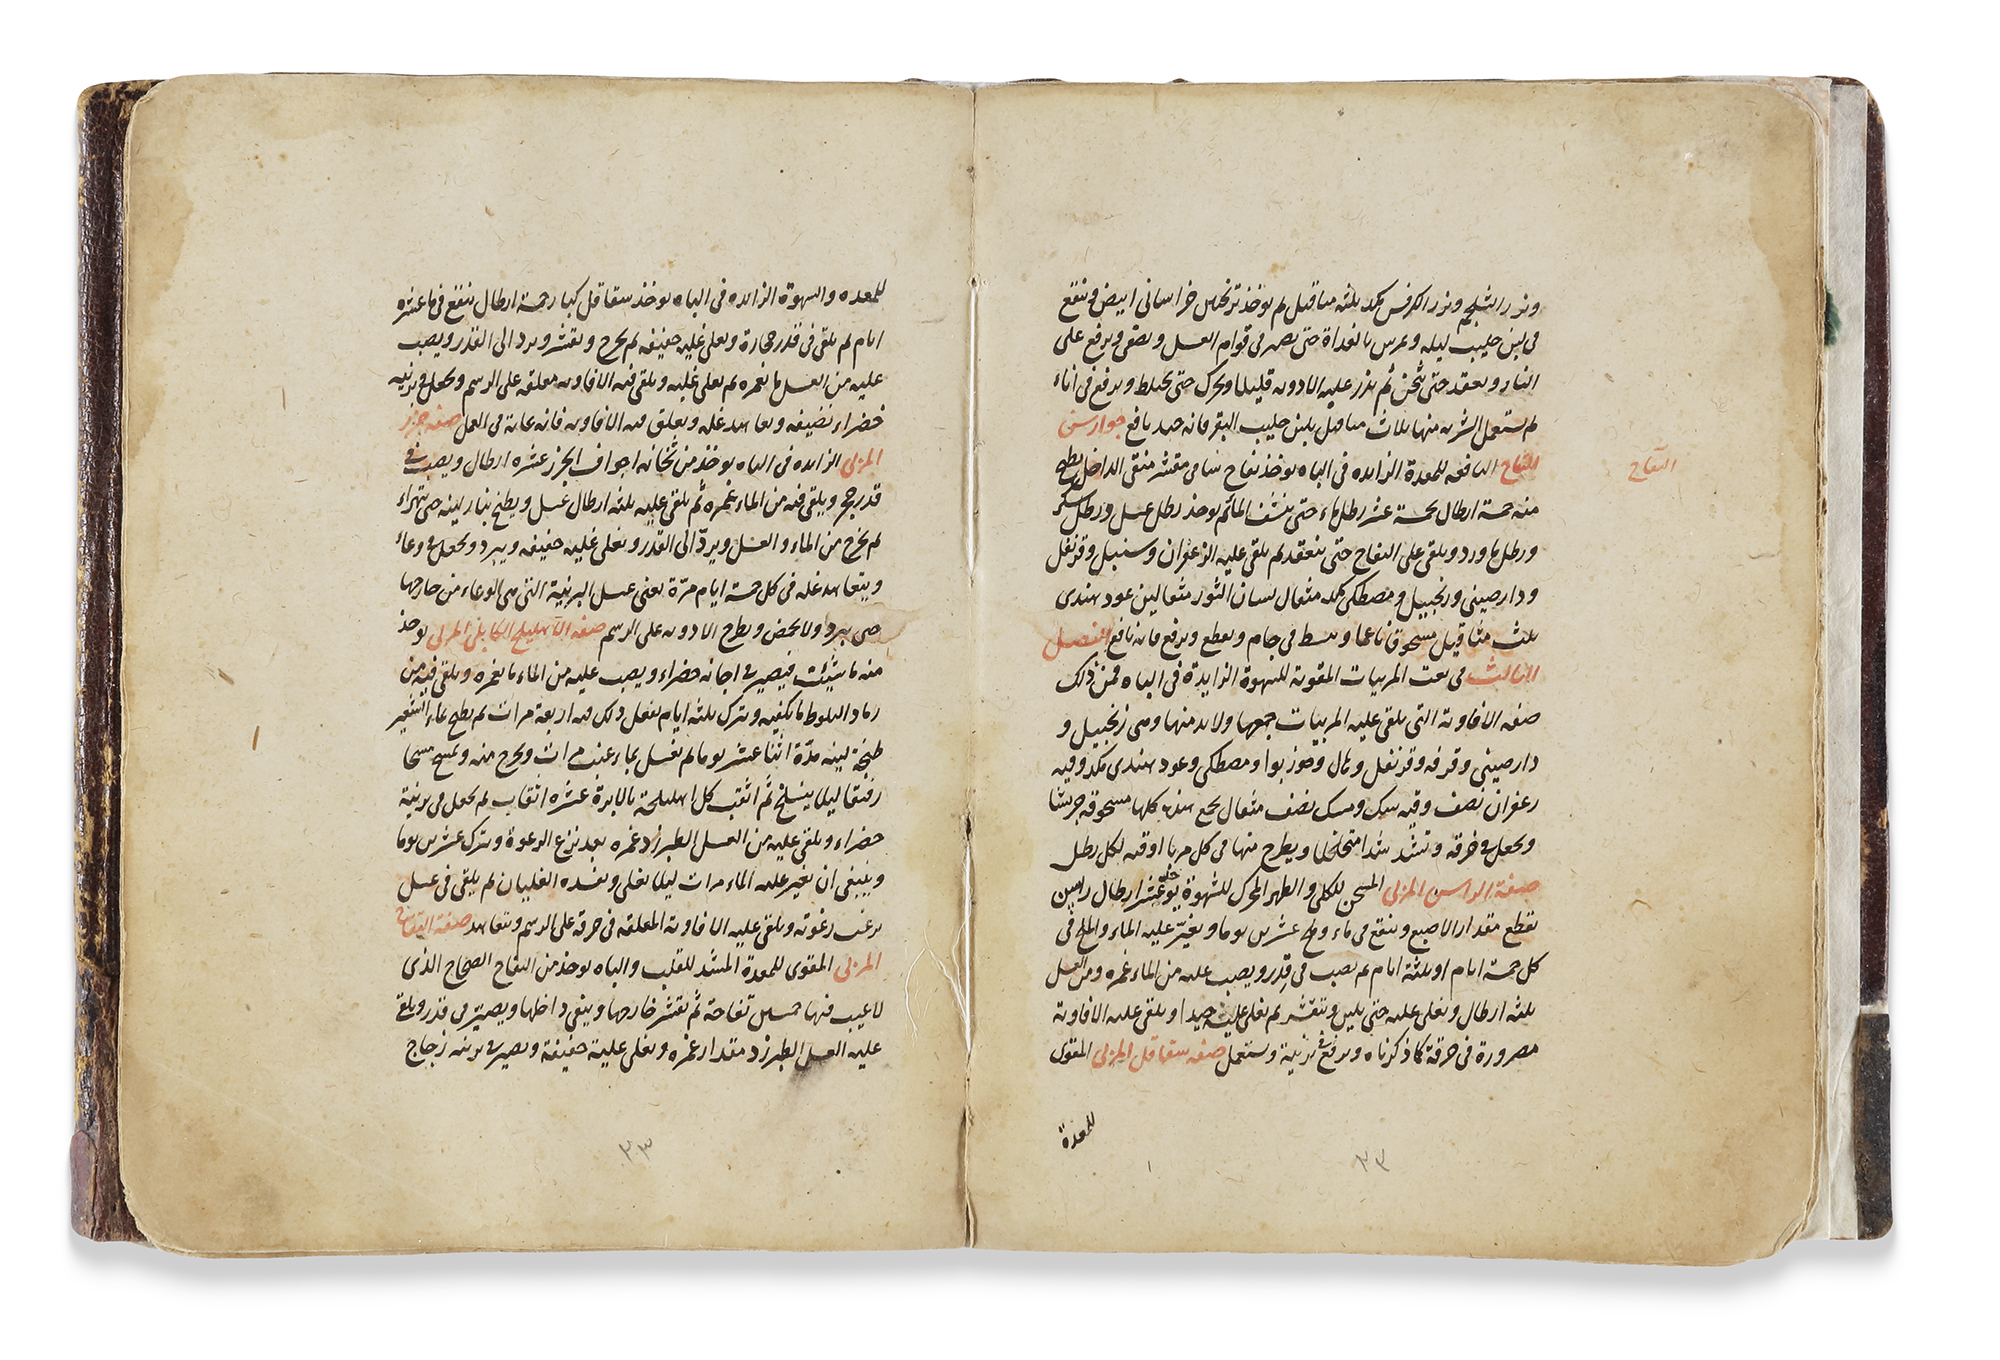 وبزر الشلجم وبزر الكرفس مكد ثلثه مثاقيل ثم يوخذ ترنجبين خراسانى ابيض وينقع
فى لبن حليب ليله ويمرس بالغداة حتى يصير فى قوام العسل ويصفى ويرفع على
النار ويعقد حتى يثخن ثم يذر عليه الادويه قليلا ويحرك حتى يختلط ويرفع فى اناء
ثم يستعمل الشربه منها ثلاث مثاقيل بلبن حليب البقر فانه جيد نافع جوارسن
التفاح النافعه للمعدة الزايده فى الباه يوخذ تفاح شامى مقشر منقى الداخل يطبخ
التفاح
منه خمسة ارطال بخمسة عشر رطل ماء حتى ينشف الماء ثم يوخذ رطل عسل ورطل سكر
ورطل ماورد ويلقى على التفاح حتى ينعقد ثم يلقى عليه الزعفران وسنبل وقرنفل
ودارصينى وزنجبيل ومصطكى مكد مثقال لسان الثور مثقالين عود هندى
ثلث مثاقيل مسحوق ناعما ويبسط فى جام ويقطع ويرفع فانه نافع الفصل
الثالث فى نعت المربيات المقويه للشهوة الزايدة فى الباه فمن ذلك
صفه الافاويه التى يلقى عليه المربيات جميعها ولابد منها وهى زنجبيل و
دارصينى وقرفه وقرنفل وهال وجوزبوا ومصطكى وعود هندى مكد وقيه
زعفران نصف وقيه سك ومسك نصف مثقال يجمع هذه كلها مسحوقه جريشا
ويجعل فى خرقه وتشد شدا متخلخلا ويطرح منها فى كل مربا اوقيه لكل رطل
صفة الراسن المربى المسخن للكلى والظهر المحرك للشهوة يوخذ عشر ارطال راسن
يقطع مقدار الاصبع وينقع فى ماء وملح عشرين يوما ويغير عليه الماء والملح فى
كل خمسة ايام او ثلثة ايام ثم يصب فى قدر ويصب عليه من الماء غمره ومن العسل
ثلثه ارطال ويغلى عليه حتى يلين ويقشر ثم يغلى غليه جيدا ويلقى عليه الافاويه
مصرورة فى خرقة كما ذكرناه ويرفع فى برنية ويستعمل صفه شقاقل المربى المقوى
للمعدة
٣٣
للمعده والشهوة الزايده فى الباه يوخذ شقاقل كبار خمسة ارطال ينقع فى ماء عشره
ايام ثم يلقى فى قدر حجارة ويغلى غليه خفيفه ثم يخرج ويقشر ويرد الى القدر ويصب
عليه من العسل ما يغمره ثم يغلى غليه ويلقى فيه الافاويه معلقه على الرسم ويجعل فى برنيه
خضراء نضيفه ويعاهد غله ويعلق فيه الافاويه فانه غاية فى العمل صفه جزر
المربى الزايده فى الباه يوخذ من ثخانه اجواف الجزر عشره ارطال ويصب فى
قدر حجر ويلقى فيه من الماء غمره ثم يلقى عليه ثلثه ارطال عسل ويطبخ بنار لينه حتى يتهراء
ثم يخرج من الماء والعسل ويردّ الى القدر ويغلى غليه خفيفه ويبرد ويجعل فى وعاء
ويتعاهد غله فى كل خمسة ايام مرّة يعنى غسل البرنية التى هى الوعاء من خارجها
حتى يبرد ولا يحمض ويطرح الادويه على الرسم صفه الاهليلج الكابلى المربى يوخذ
منه ما شيئت فيصير فى اجانه خضراء ويصب عليه من الماء ما يغمره ويلقى فيه من
رماد البلوط ما يكفيه ويترك ثلثه ايام يفعل ذلك فيه اربعة مرات ثم يطبخ بماء الشعير
طبخة لينه مدّة اثنا عشر يوما ثم يغسل بماء عذب مرات ويخرج منه ويمسح مسحا
رفيقا ليلا ينسلخ ثم اثقب كل اهليلجة بالابرة عشره اثقاب ثم يجعل فى برنية
خضراء ويلقى عليه من العسل الطبرزد غمره بعد نزع الرغوة ويترك عشرين يوما
وينبغى ان يغير عليه الماء مرات ليلا يغلى ويفسده الغليان ثم يلقى فى عسل
نزعت رغوته ويلقى عليه الافاويه المعلقه فى خرقه على الرسم ويتعاهد صفة التفاح
المربى المقوى للمعدة المشد للقلب والباه يوخذ من التفاح الصحاح الذى
لا عيب فيها خمسين تفاحة ثم يقشر خارجها وينقى داخلها ويصير فى قدر ويلقى
عليه العسل الطبرزد مقدار غمره ويغلى غلية خفيفة ويصير فى برنيه زجاج
٣٣